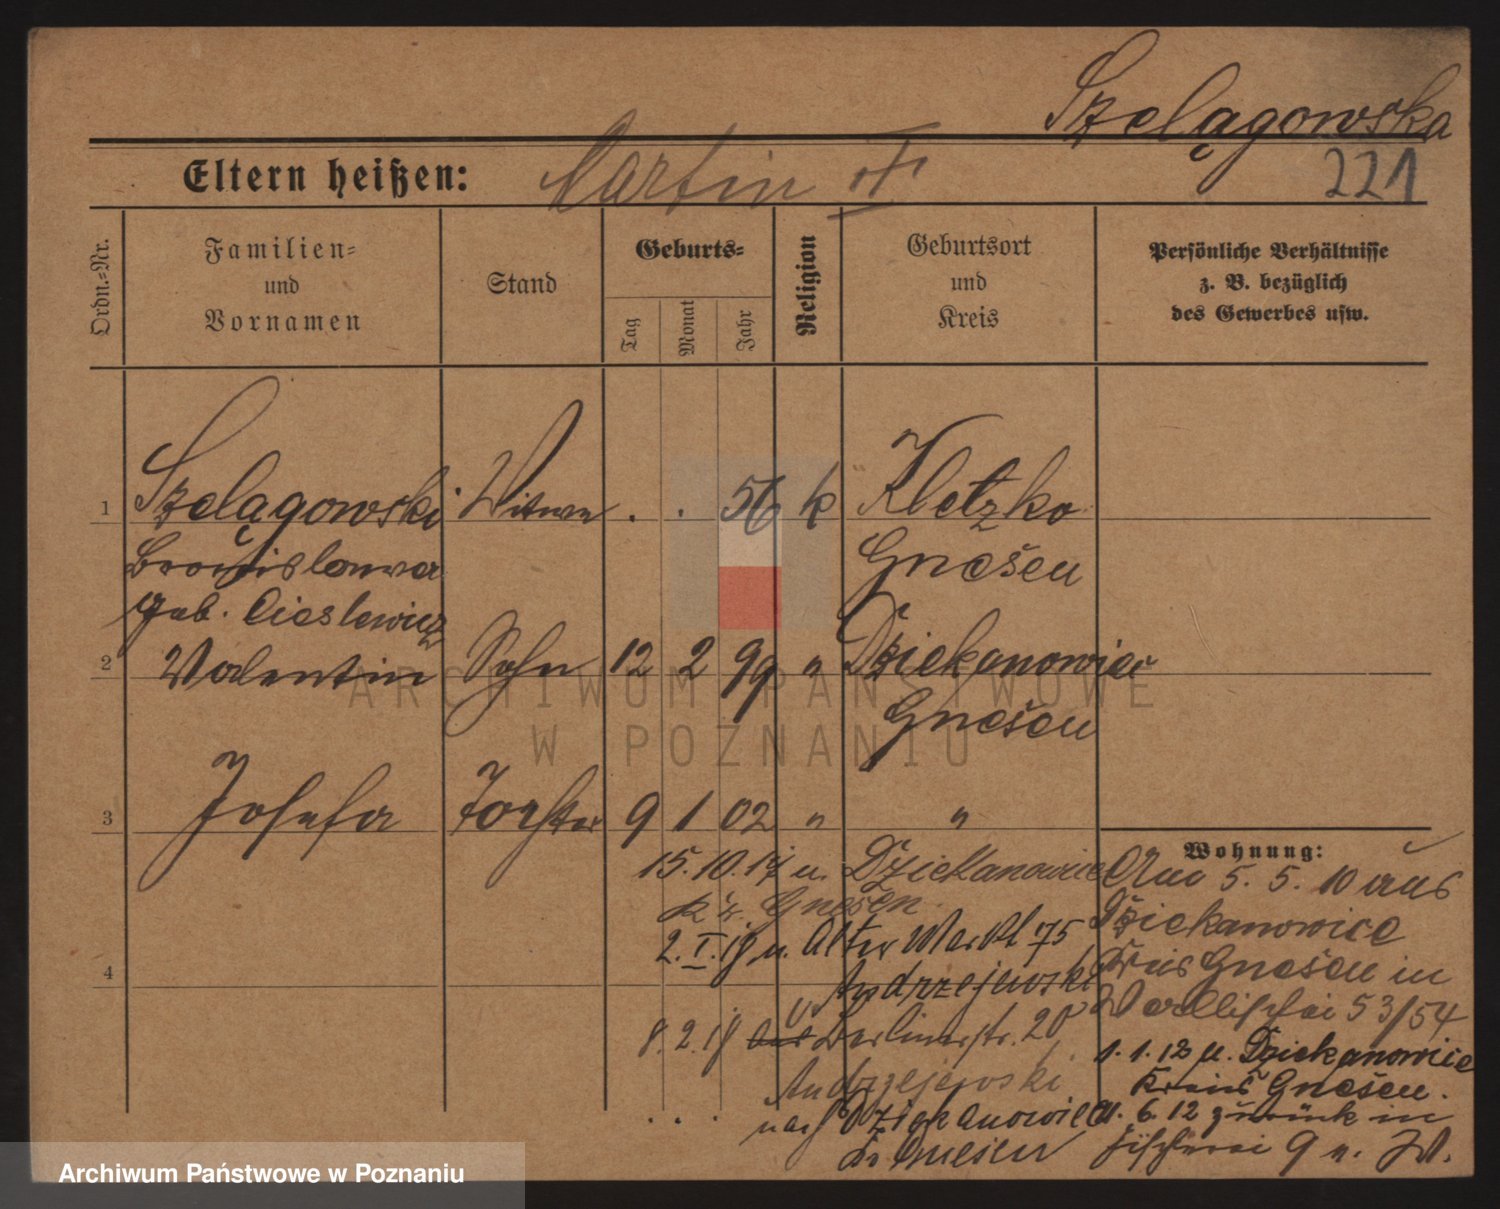 Szelągowska
Eltern heißen: Martin †
221
Ordn.-Nr.
Familien-
und
Vornamen
Stand
Geburts-
Tag
Monat
Jahr
Religion
Geburtsort
und
Kreis
Persönliche Verhältnisse
z. B. bezüglich
des Gewerbes usw.
1 Szelągowski Witwe . . 56 k Kletzko
Bronislawa Gnesen
geb. Cieslewicz
2 Valentin Sohn 12 2 99 " Dziekanowice
Gnesen
3 Josefa Tochter 9 1 02 " "
15.10.17 n. Dziekanowice
Kr. Gnesen.
2. I. 18 n. Alter Markt 75
4
Andrzejewski
8. 2. 18 aus Berlinerstr. 20
Andrzejewski
. . . nach Dziekanowice
Kr Gnesen
Wohnung:
5. 5. 10 aus
Dziekanowice
Kreis Gnesen in
Wallischei 53/54
1. 1. 12 n. Dziekanowice
Kreis Gnesen.
1. 6. 12 zurück in
Fischerei 9 n. W.
ARCHIWUM PAŃSTWOWE
W POZNANIU
Archiwum Państwowe w Poznaniu